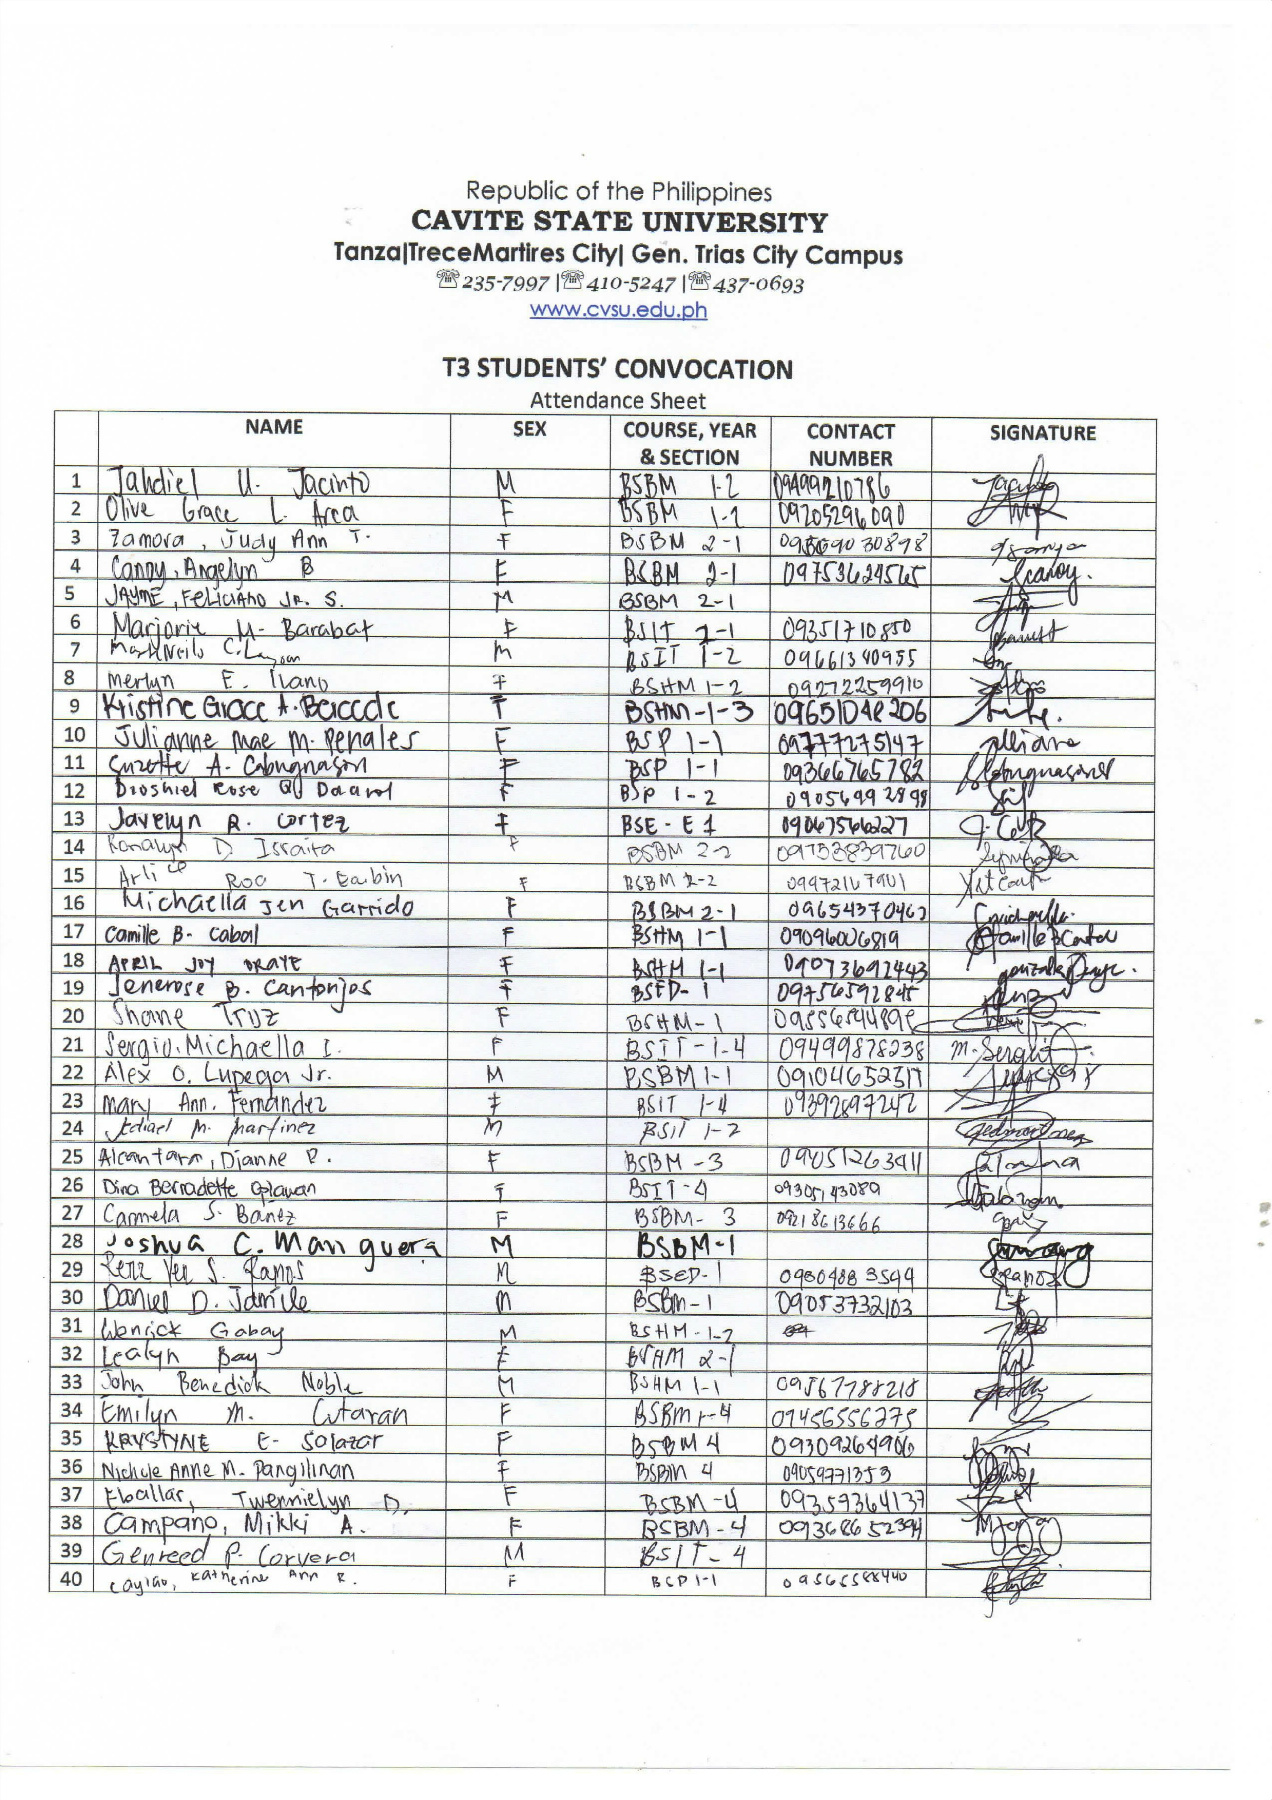 Republic of the Philippines
CAVITE STATE UNIVERSITY
Tanza|TreceMartires City| Gen. Trias City Campus
☏235-7997 |☏410-5247 |☏437-0693
www.cvsu.edu.ph
T3 STUDENTS' CONVOCATION
Attendance Sheet
NAME SEX COURSE, YEAR & SECTION CONTACT NUMBER SIGNATURE
1 Jahdiel U. Jacinto M BSBM 1-2 09499210786
2 Olive Grace L. Area F BSBM 1-2 09205296090
3 Zamora, Judy Ann T. F BSBM 2-1
4 Canoy, Angelyn B F BSBM 2-1 09753624565
5 JAYME, FELICIANO JR. S. M BSBM 2-1
6 Marjorie M. Barabat F BSIT 2-1 09351710850
7 C. M BSIT 1-2 09661340955
8 Merlyn E. Ilano F BSHM 1-2 09272259910
9 Kristine Grace A. F BSHM-1-3 09651048206
10 Julianne Mae M. Penales F BSP 1-1 09777275147
11 Suzette A. Cabugnason F BSP 1-1 09366765782
12 Rose F BSP 1-2 09056992898
13 Javelyn R. Cortez F BSE-E1 09067566227
14 Ronalyn D. F BSBM 2-2 09753839760
15 T. F BSBM 2-2 09972167901
16 Michaella Jen Garrido F BSBM 2-1 09654370462
17 Camille B. Cabal F BSHM 1-1 09096006819
18 APRIL JOY DRAYE F BSHM 1-1 09073692443
19 Jenerose B. Cantonjos F BSED-1 09756592845
20 Shane Truz F BSHM-1
21 Sergio, Michaella I. F BSIT-1-4 09499878238 M. Sergio
22 Alex O. Lupega Jr. M BSBM 1-1 09104652317
23 Mary Ann Fernandez F BSIT 1-4 09392897242
24 Jediael M. Martinez M BSIT 1-2
25 Alcantara, Dianne P. F BSBM-3 09051263411
26 Dina Bernadette F BSIT-4 09305143089
27 Carmela S. Bañez F BSBM-3 09218613666
28 Joshua C. Manguera M BSBM-1
29 Renz Ver S. Ramos M BSED-1 09304883599
30 Daniel D. Jamile M BSBM-1 09053732103
31 Wenrick Gabay M BSHM-1-2
32 Lealyn Bay F BSHM 2-1
33 John Benedick Noble M BSHM 1-1 09567788218
34 Emilyn M. Cutaran F BSBM 1-4 09456556275
35 KRYSTYNE E. Solazar F BSBM 4 09309264906
36 Nichole Anne M. Pangilinan F BSBM 4 09059771353
37 Eballar, Twennielyn D. F BSBM-4 09359364137
38 Campano, Mikki A. F BSBM-4 09368652394
39 Genreed P. Corvera M BSIT-4
40 Caylao, Katherine Ann R. F BSP 1-1 09565588440